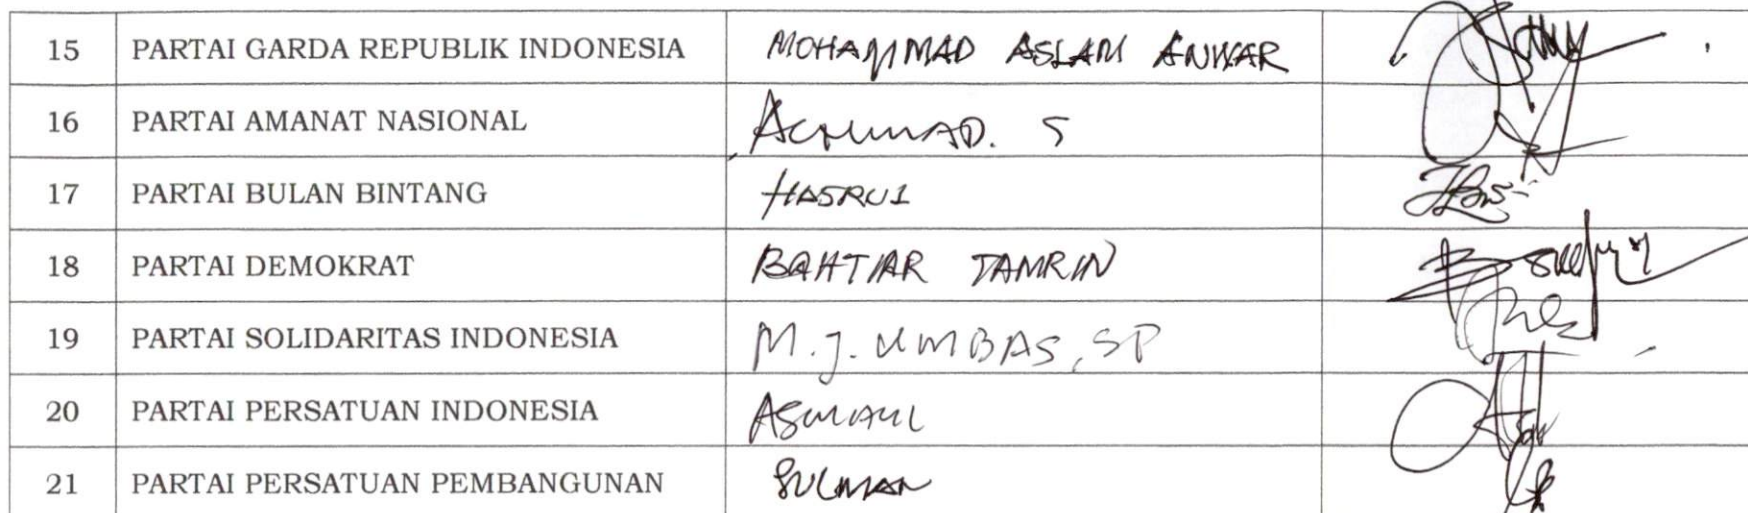 15 PARTAI GARDA REPUBLIK INDONESIA MOHAMMAD ASLAM ANWAR
16 PARTAI AMANAT NASIONAL ACHMAD. S
17 PARTAI BULAN BINTANG HASRUL
18 PARTAI DEMOKRAT BAHTIAR TAMRIN
19 PARTAI SOLIDARITAS INDONESIA M.J. UMBAS, SP
20 PARTAI PERSATUAN INDONESIA
21 PARTAI PERSATUAN PEMBANGUNAN SULMAN